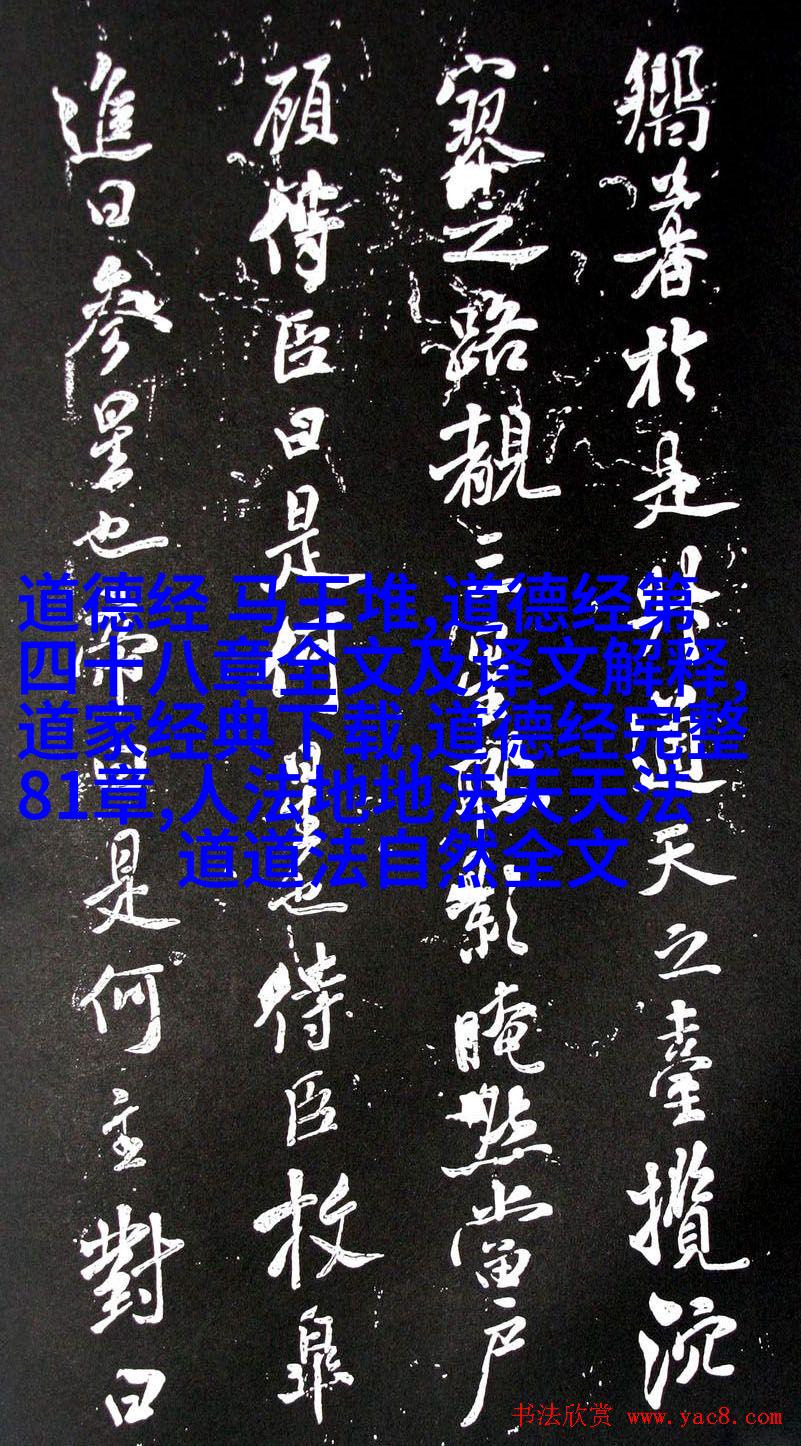 於是天之臺攬沉
寥之路覩影當戶
顧侍臣曰是何星也侍臣枚皋
進曰參星也帝曰是何主對曰
道德经 马王堆,道德经第
四十八章全文及译文解释,
道家经典下载,道德经完整
81章,人法地地法天天法
道道法自然全文
书法欣赏 www.yac8.com